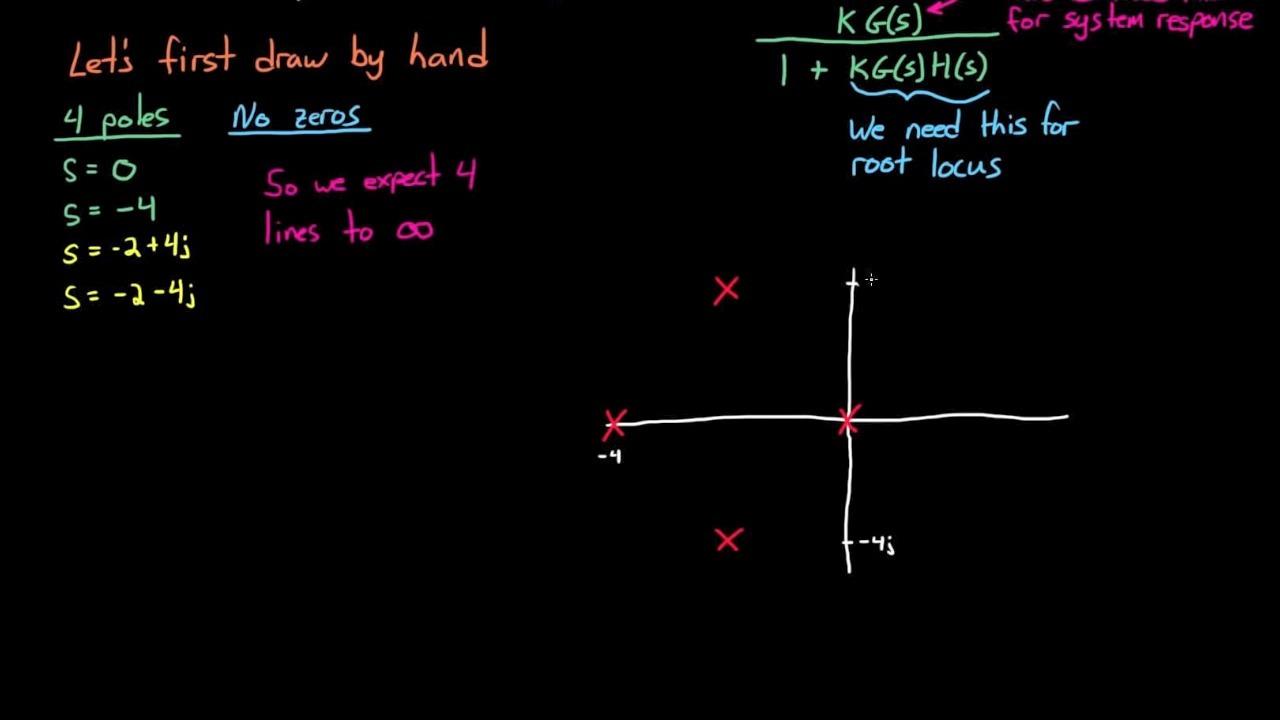 KG(s)
for system response
Let's first draw by hand
1 + KG(s)H(s)
4 poles
No zeros
We need this for
root locus
s = 0
So we expect 4
s = -4
lines to ∞
s = -2+4j
s = -2-4j
-4
-4j